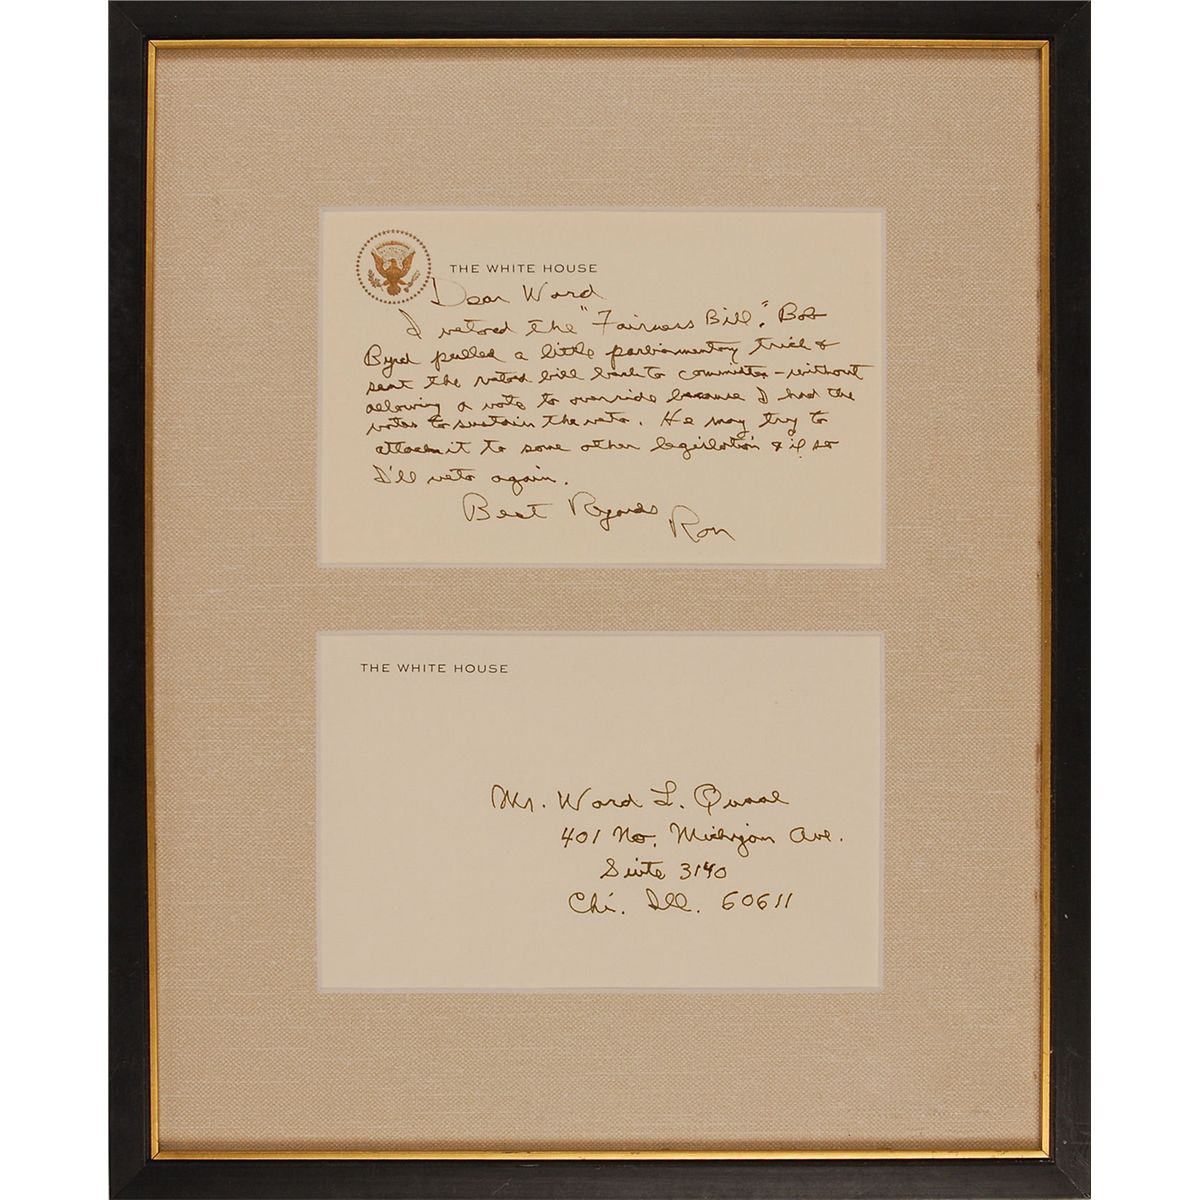 THE WHITE HOUSE
Dear Ward
I vetoed the "Fairness Bill". Bob
Byrd pulled a little parliamentary trick &
sent the vetoed bill back to committee - without
allowing a vote to override because I had the
votes to sustain the veto. He may try to
attach it to some other legislation & if so
I'll veto again.
Best Regards
Ron
THE WHITE HOUSE
Mr. Ward L. Quaal
401 No. Michigan Ave.
Suite 3140
Chi. Ill. 60611